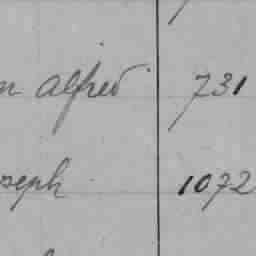 alfred 731
seph 1072